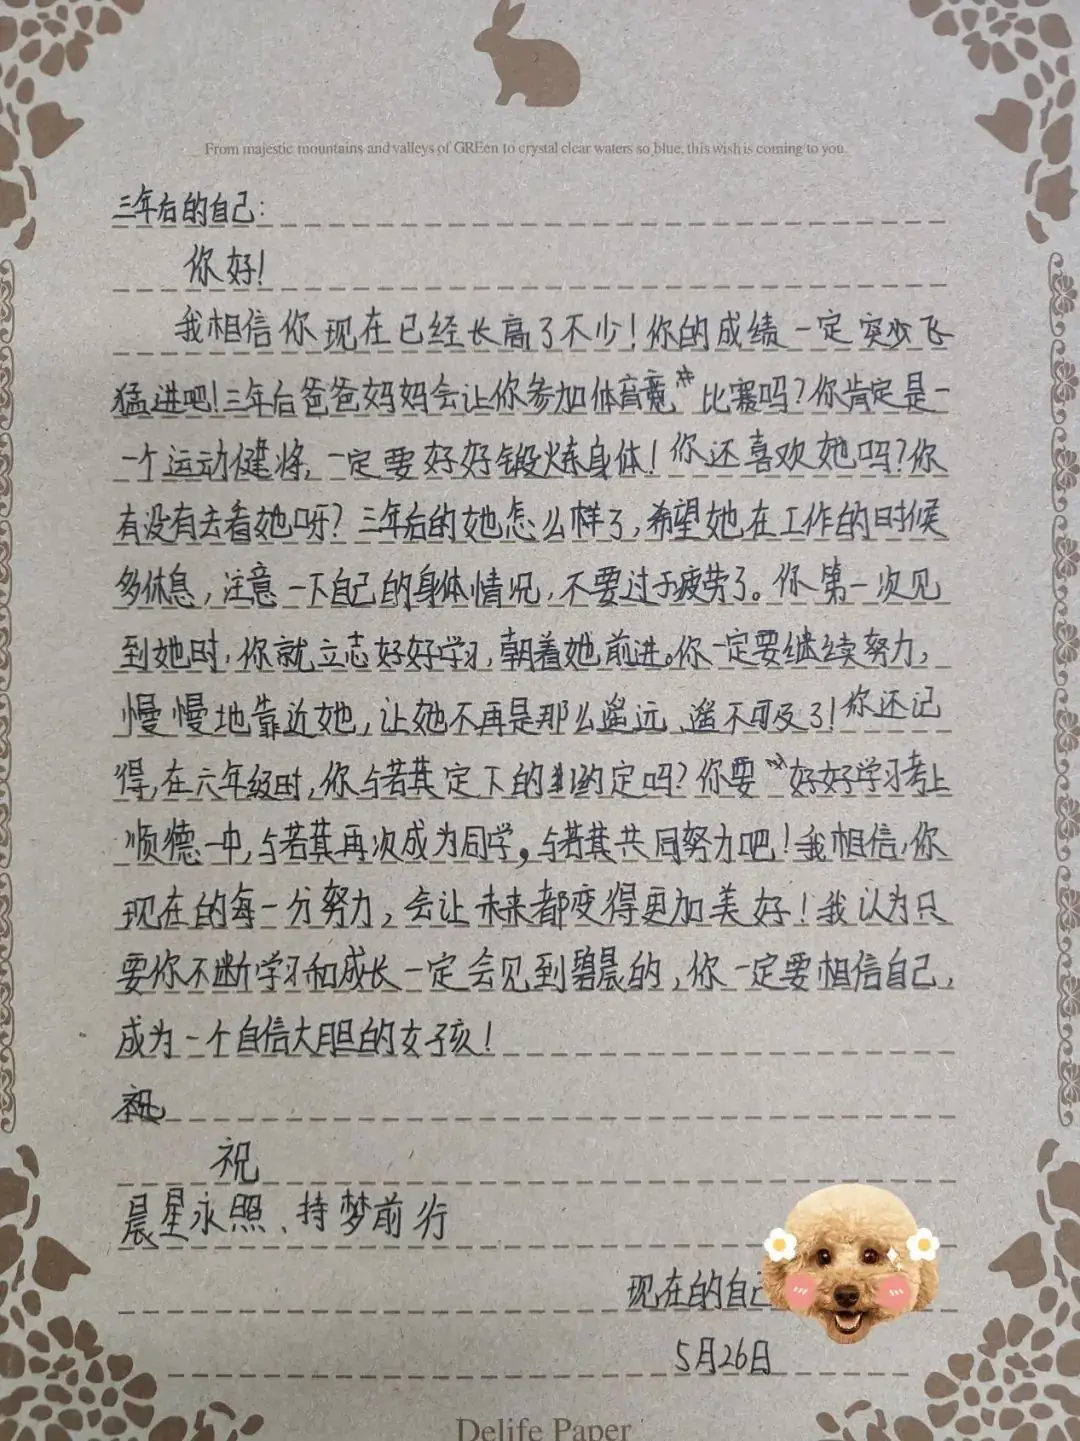 From majestic mountains and valleys of GREen to crystal clear waters so blue, this wish is coming to you.
三年后的自己：
你好！
我相信你现在已经长高了不少！你的成绩一定突飞
猛进吧！三年后爸爸妈妈会让你参加体育竞比赛吗？你肯定是一
个运动健将，一定要好好锻炼身体！你还喜欢她吗？你
有没有去看她呀？三年后的她怎么样了，希望她在工作的时候
多休息，注意一下自己的身体情况，不要过于疲劳了。你第一次见
到她时，你就立志好好学习，朝着她前进。你一定要继续努力，
慢慢地靠近她，让她不再是那么遥远、遥不可及了！你还记
得，在六年级时，你与若其定下的约定吗？你要好好学习考上
顺德一中，与若其再次成为同学，与若其共同努力吧！我相信，你
现在的每一分努力，会让未来都变得更加美好！我认为只
要你不断学习和成长一定会见到碧晨的，你一定要相信自己，
成为一个自信大胆的女孩！
祝
祝
晨星永照、持梦前行
现在的自己
5月26日
Delife Paper